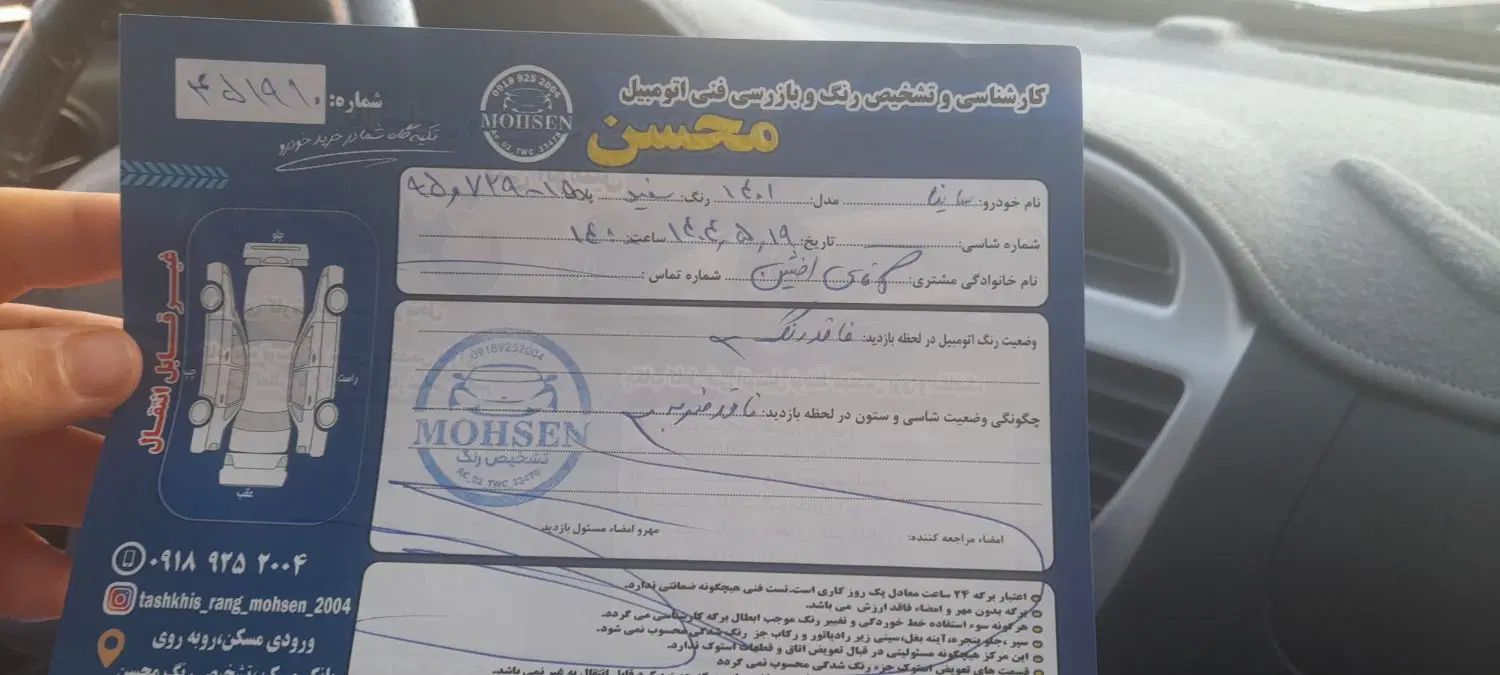 کارشناسی و تشخیص رنگ و بازرسی فنی اتومبیل
محسن
0918 925 2004
MOHSEN
شماره: ۴۵۱۹۱۰
تکیه گاه شما در خرید خودرو
نام خودرو: ساینا مدل: ۱۴۰۱ رنگ: سفید پلاک
شماره شاسی: تاریخ: ساعت:
نام خانوادگی مشتری: شماره تماس:
وضعیت رنگ اتومبیل در لحظه بازدید: فاقد رنگ
چگونگی وضعیت شاسی و ستون در لحظه بازدید: فاقد ضرب
09189252004
MOHSEN
تشخیص رنگ
امضاء مراجعه کننده: مهر و امضاء مسئول بازدید:
غیر قابل انتقال
جلو
راست
چپ
عقب
۰۹۱۸ ۹۲۵ ۲۰۰۴
tashkhis_rang_mohsen_2004
ورودی مسکن،روبه روی
بانک مسکن،تشخیص رنگ محسن
اعتبار برگه ۲۴ ساعت معادل یک روز کاری است.تست فنی هیچگونه ضمانتی ندارد.
برگه بدون مهر و امضاء فاقد ارزش می باشد.
هر گونه سوء استفاده خط خوردگی و تغییر رنگ موجب ابطال برگه کارشناسی می گردد.
سپر ،جلو پنجره،آینه بغل،سینی زیر رادیاتور و رکاب جز رنگ شدگی محسوب نمی شود.
این مرکز هیچگونه مسئولیتی در قبال تعویض اتاق و قطعات استوک ندارد.
قسمت های تعویض استوک جزء رنگ شدگی محسوب نمی گردد
قابل انتقال به غیر نمی باشد.